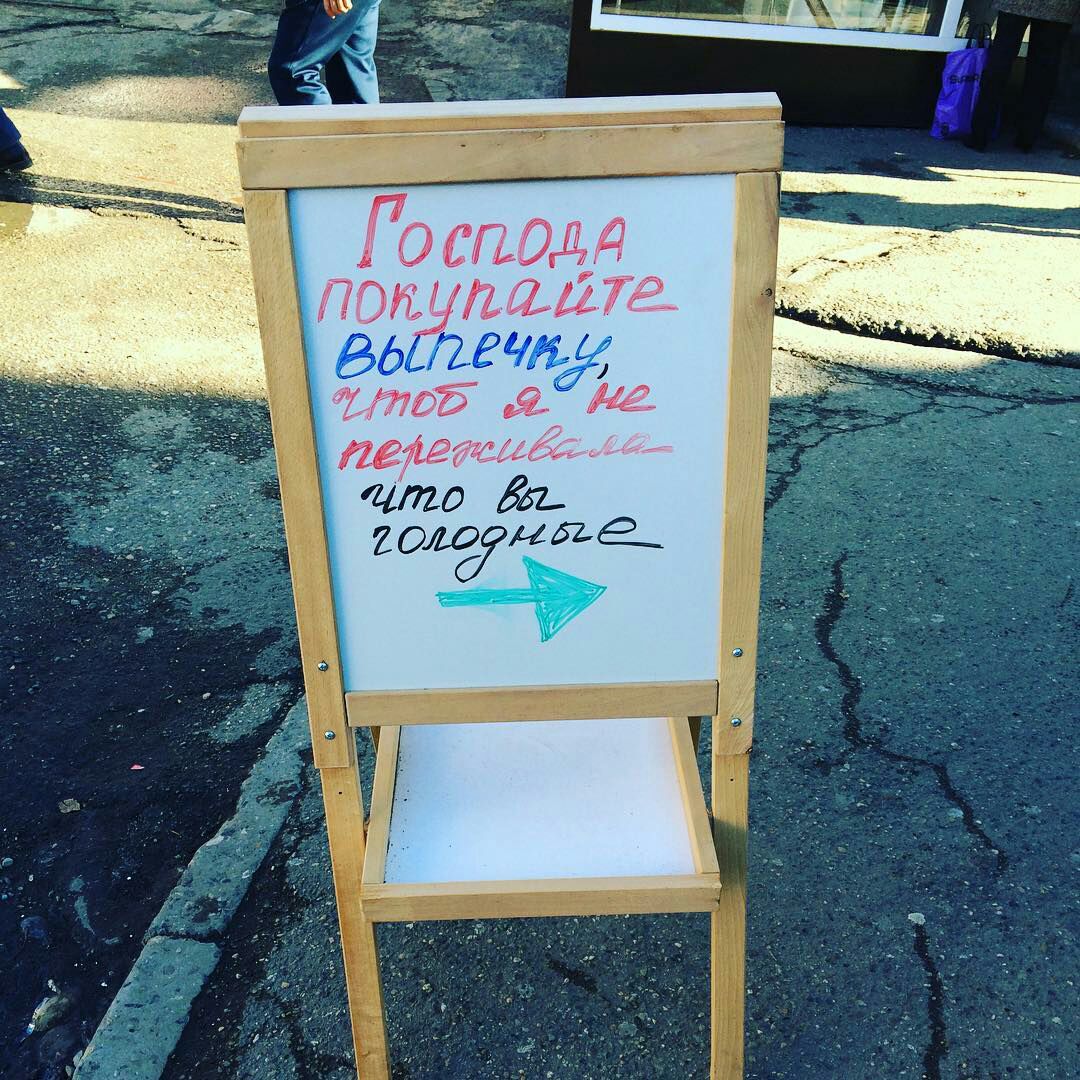 Господа
покупайте
выпечку,
чтоб я не
переживала
что вы
голодные